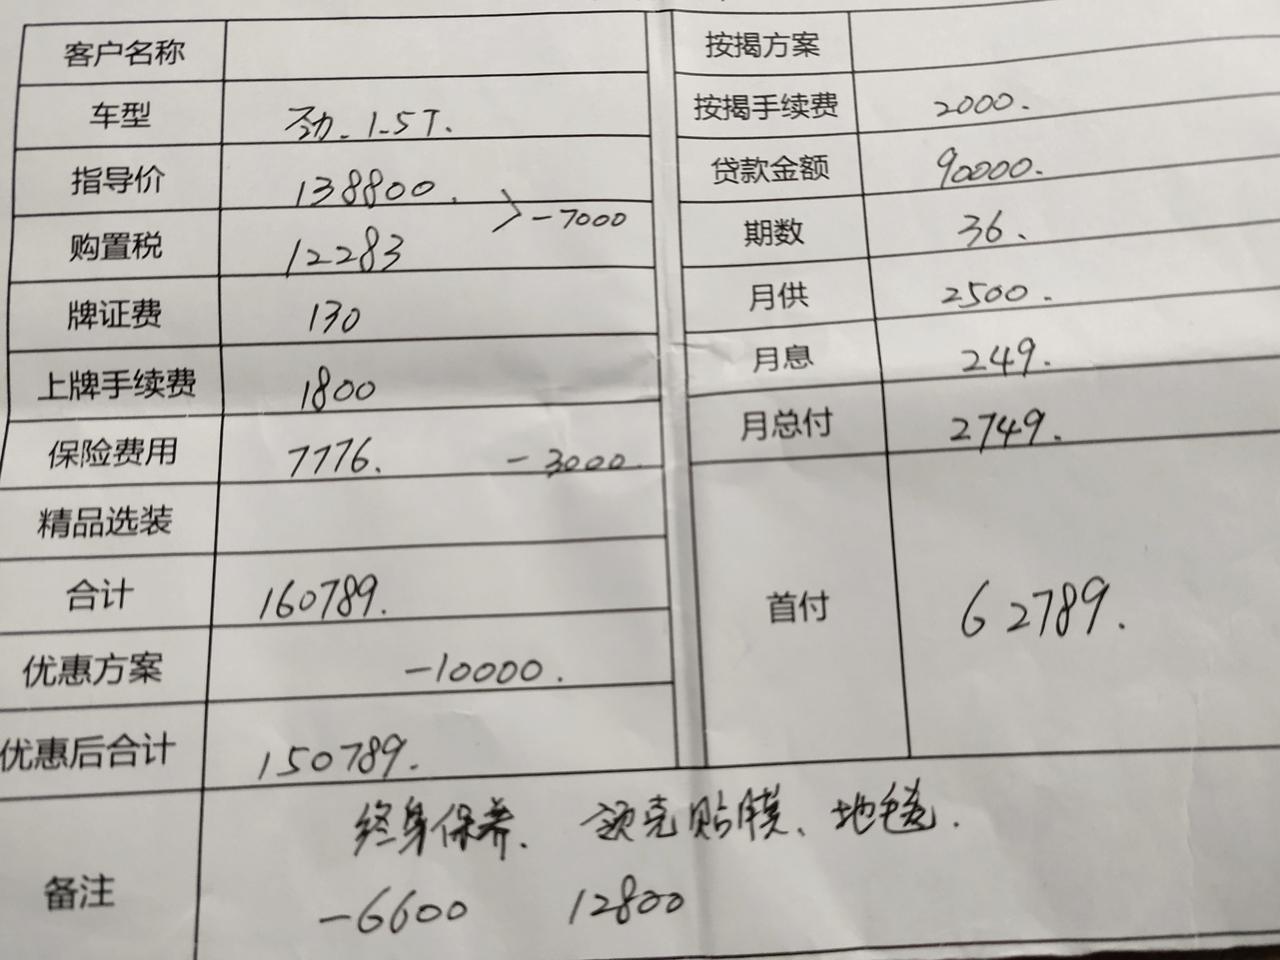 客户名称
车型 劲-1-5T.
指导价 138800.
>-7000
购置税 12283
牌证费 130
上牌手续费 1800
保险费用 7776. -3000.
精品选装
合计 160789.
优惠方案 -10000.
优惠后合计 150789.
按揭方案
按揭手续费 2000.
贷款金额 90000.
期数 36、
月供 2500.
月息 249.
月总付 2749.
首付 62789.
备注 终身保养、领克贴膜、地毯.
-6600 12800